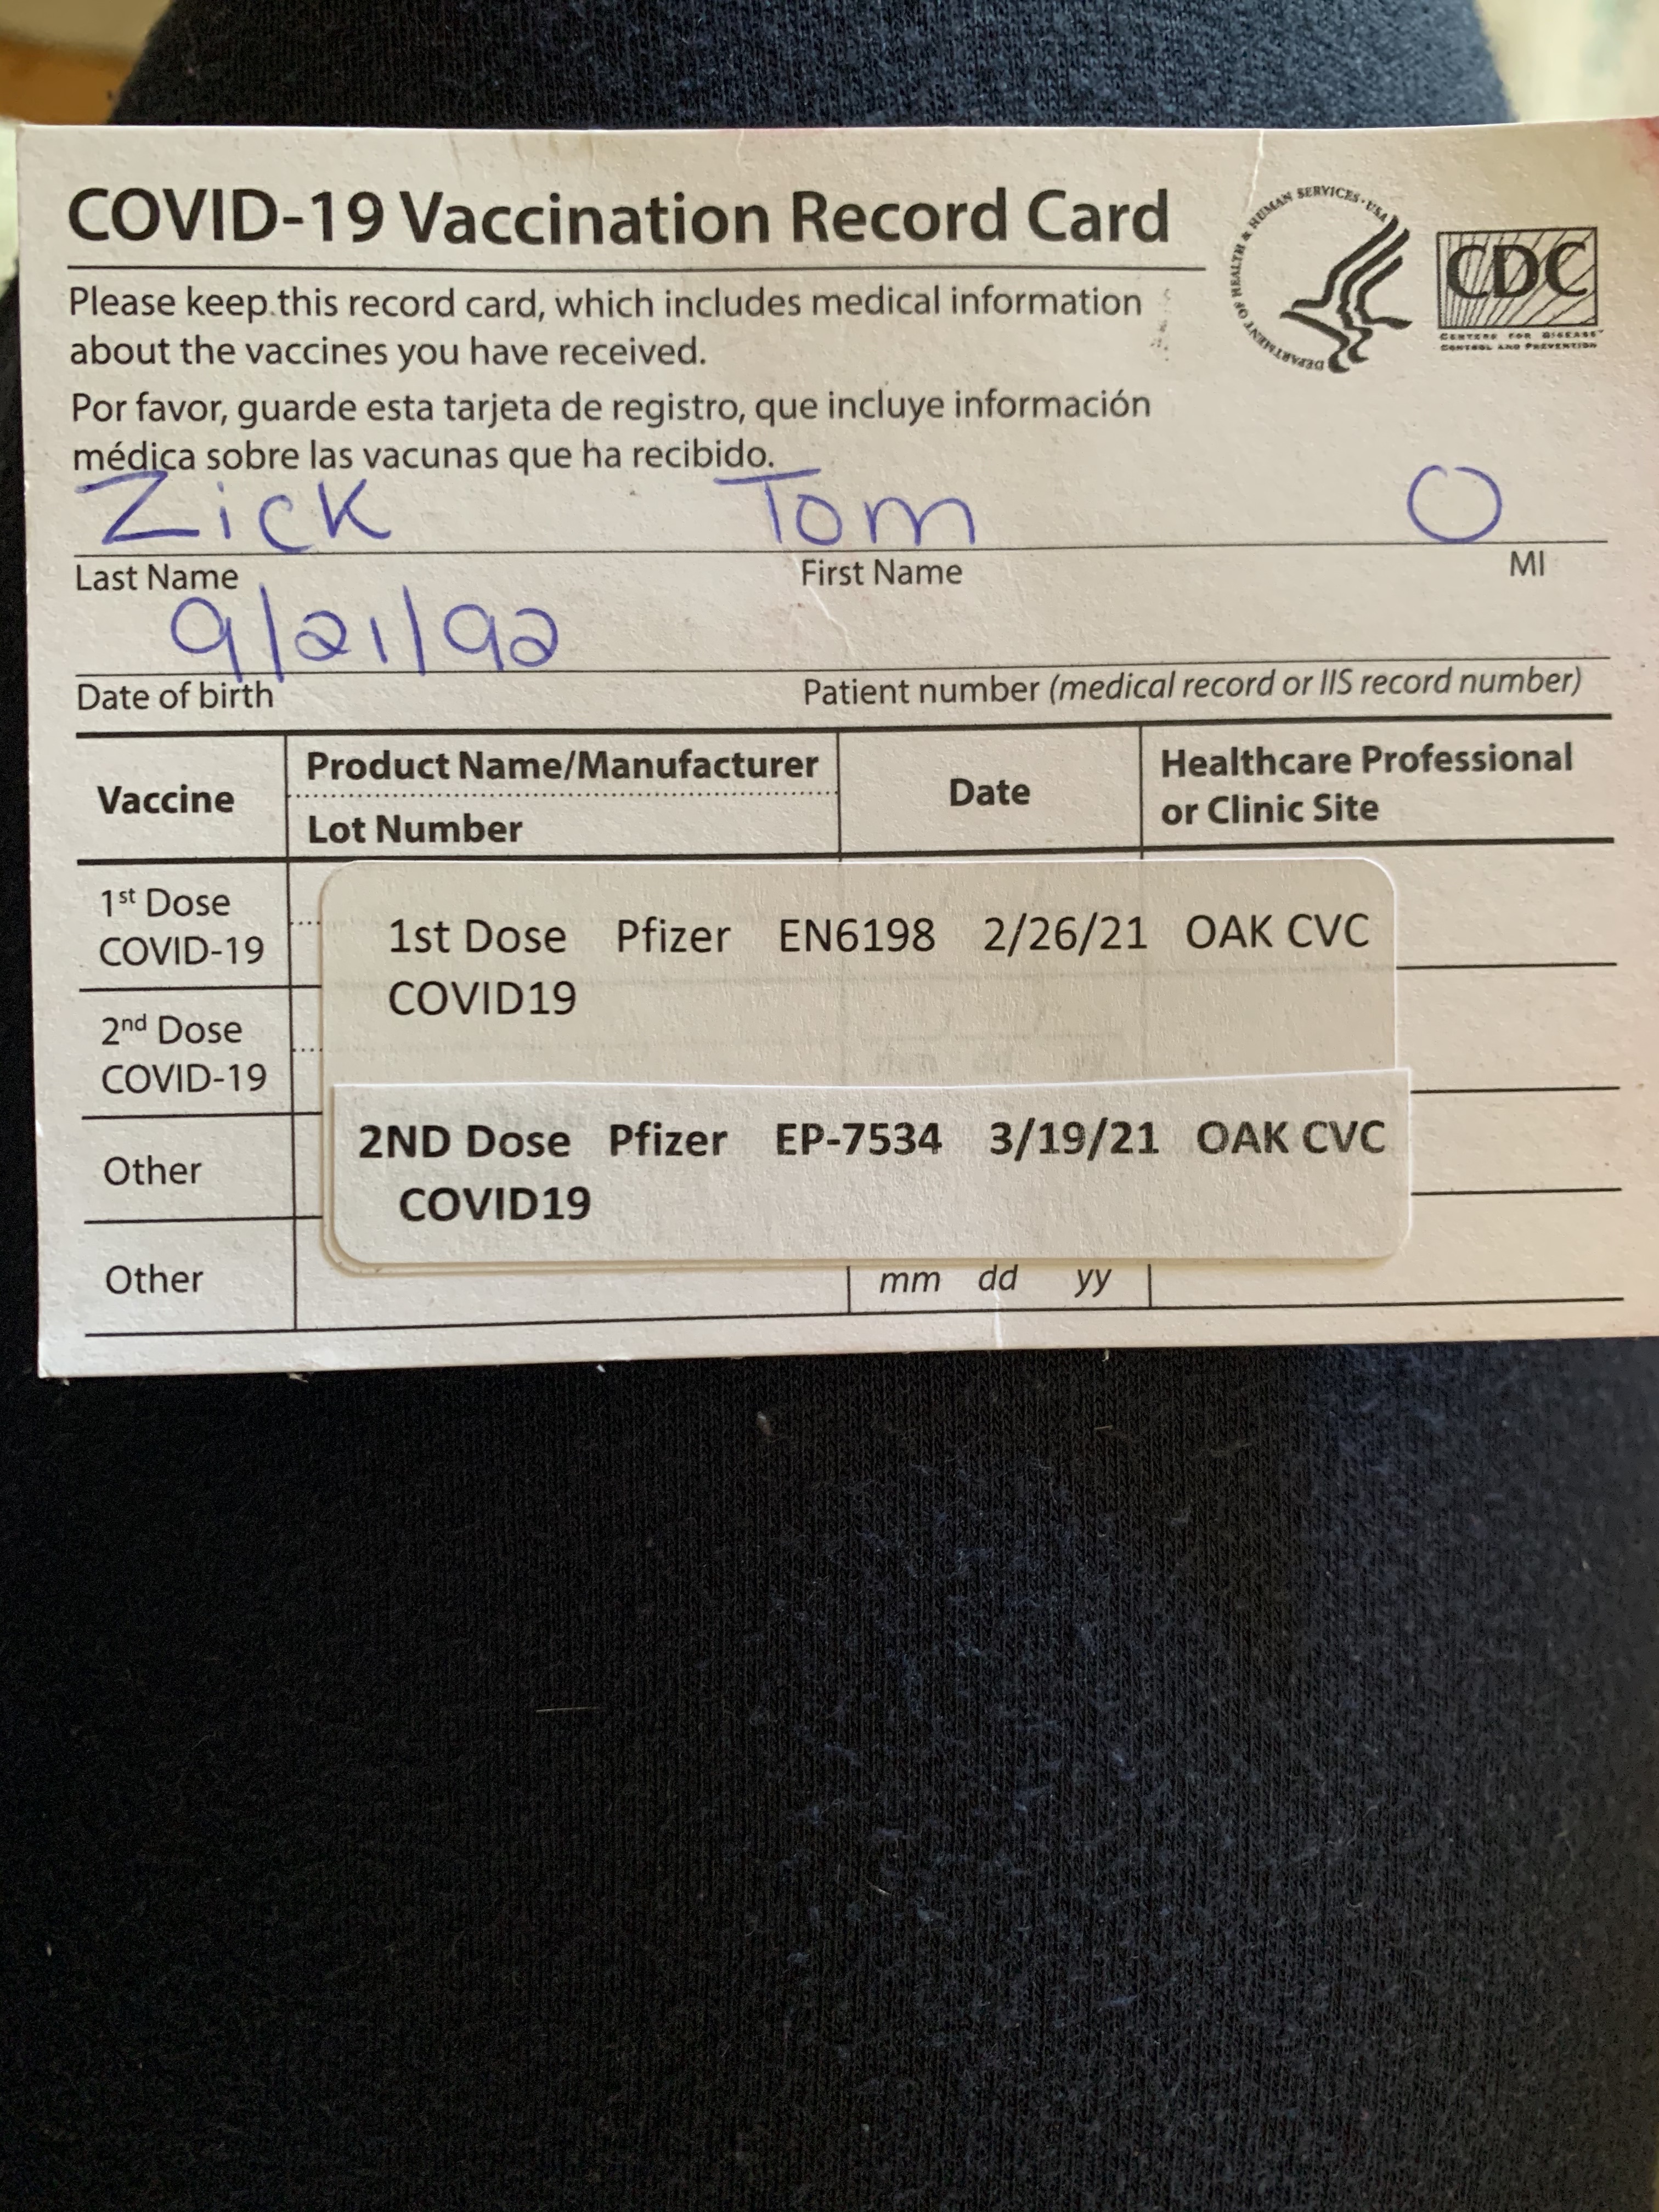 COVID-19 Vaccination Record Card
DEPARTMENT OF HEALTH & HUMAN SERVICES · USA
CDC
CENTERS FOR DISEASE
CONTROL AND PREVENTION
Please keep this record card, which includes medical information
about the vaccines you have received.
Por favor, guarde esta tarjeta de registro, que incluye información
médica sobre las vacunas que ha recibido.
Zick Tom O
Last Name First Name MI
9/21/92
Date of birth Patient number (medical record or IIS record number)
Vaccine Product Name/Manufacturer Date Healthcare Professional
Lot Number or Clinic Site
1st Dose
COVID-19
1st Dose Pfizer EN6198 2/26/21 OAK CVC
COVID19
2nd Dose
COVID-19
2ND Dose Pfizer EP-7534 3/19/21 OAK CVC
COVID19
Other
Other mm dd yy